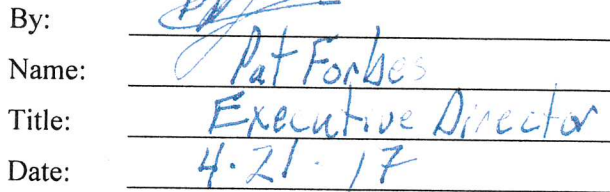 By:
Name: Pat Forbes
Title: Executive Director
Date: 4.21.17